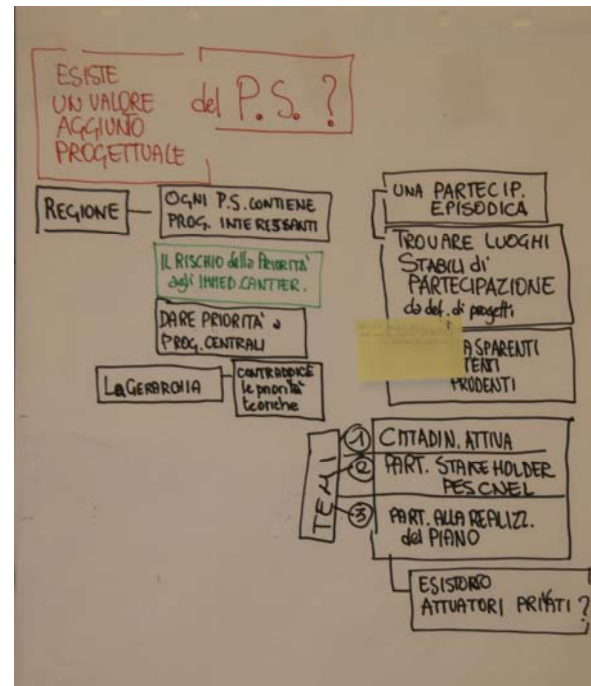 ESISTE
UN VALORE
AGGIUNTO
PROGETTUALE
del P.S.?
REGIONE
OGNI P.S. CONTIENE
PROG. INTERESSANTI
IL RISCHIO della PRIORITÀ
agli IMMED. CANTIER.
DARE PRIORITÀ a
PROG. CENTRALI
La GERARCHIA
CONTRADDICE
le priorità
teoriche
UNA PARTECIP.
EPISODICA
TROVARE LUOGHI
STABILI di
PARTECIPAZIONE
da def. di progetti
ASPARENTI
TENTI
PRUDENTI
TEMI
1 CITTADIN. ATTIVA
2 PART. STAKEHOLDER
PES CNEL
3 PART. ALLA REALIZZ.
del PIANO
ESISTONO
ATTUATORI PRIVATI?